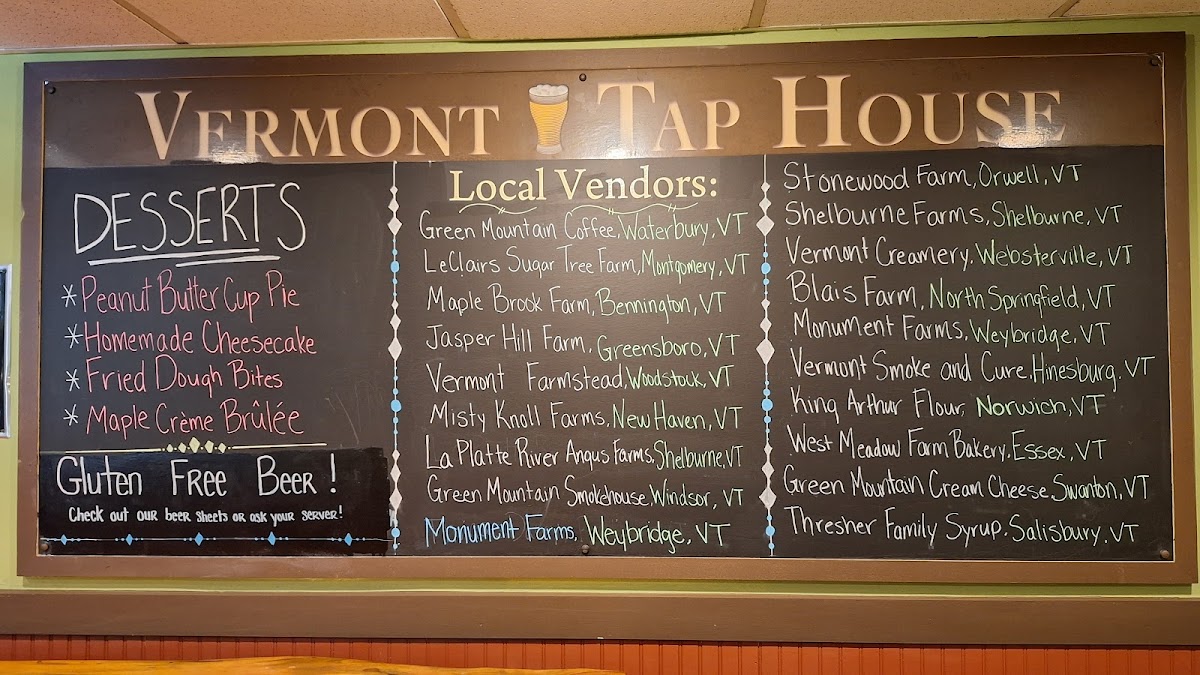 VERMONT TAP HOUSE
DESSERTS
* Peanut Butter Cup Pie
* Homemade Cheesecake
* Fried Dough Bites
* Maple Crème Brûlée
Gluten Free Beer!
Check out our beer sheets or ask your server!
Local Vendors:
Green Mountain Coffee, Waterbury, VT
LeClairs Sugar Tree Farm, Montgomery, VT
Maple Brook Farm, Bennington, VT
Jasper Hill Farm, Greensboro, VT
Vermont Farmstead, Woodstock, VT
Misty Knoll Farms, New Haven, VT
La Platte River Angus Farms, Shelburne, VT
Green Mountain Smokehouse, Windsor, VT
Monument Farms, Weybridge, VT
Stonewood Farm, Orwell, VT
Shelburne Farms, Shelburne, VT
Vermont Creamery, Websterville, VT
Blais Farm, North Springfield, VT
Monument Farms, Weybridge, VT
Vermont Smoke and Cure, Hinesburg, VT
King Arthur Flour, Norwich, VT
West Meadow Farm Bakery, Essex, VT
Green Mountain Cream Cheese, Swanton, VT
Thresher Family Syrup, Salisbury, VT